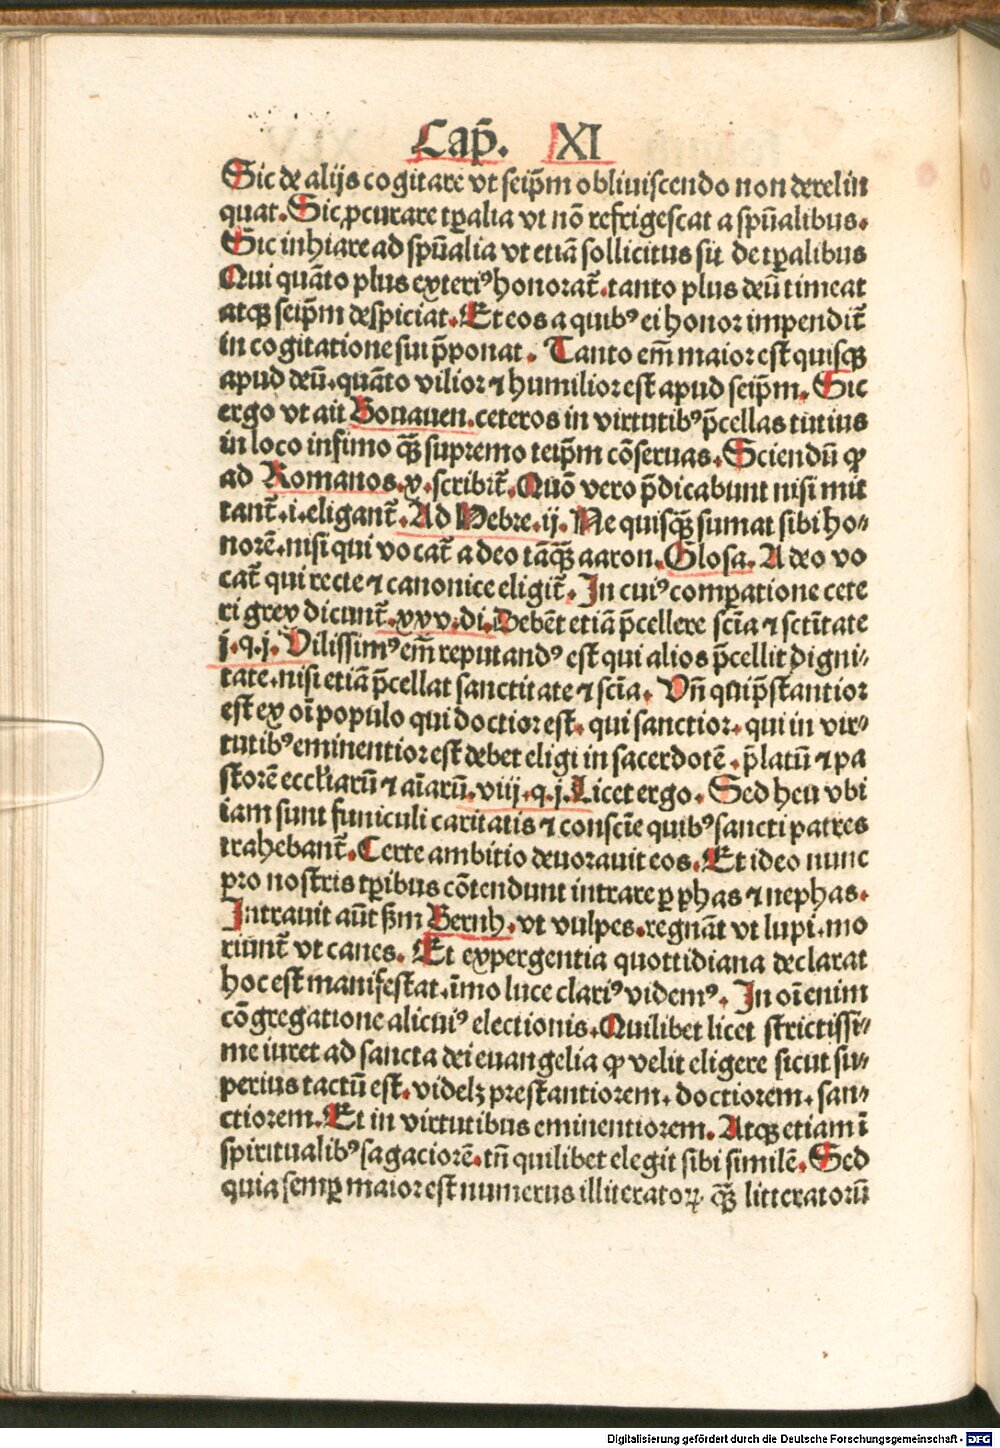 Cap̄. XI
Sic de alijs cogitare vt seip̄m obliuiscendo non derelin
quat. Sic ꝓcurare tꝑalia vt nō refrigescat a spūalibus.
Sic inhiare ad spūalia vt etiā sollicitus sit de tꝑalibus
Qui quāto plus exteriꝰ honorat̄. tanto plus deū timeat
atqꝫ seip̄m despiciat. Et eos a quibꝰ ei honor impendit̄
in cogitatione sui p̄ponat. Tanto em̄ maior est quisqꝫ
apud deū. quāto vilior ⁊ humilior est apud seip̄m. Sic
ergo vt ait Bonauen. ceteros in virtutibꝰ p̄cellas tutius
in loco infimo qꝫ̄ supremo teip̄m cōseruas. Sciendū ꝙ
ad Romanos. x. scribit̄. Quō vero p̄dicabunt nisi mit
tant̄. i. eligant̄. Ad Hebre. ij. Ne quisqꝫ̄ sumat sibi ho⸗
norē. nisi qui vocat̄ a deo tāqꝫ̄ aaron. Glosa. A deo vo
cat̄ qui recte ⁊ canonice eligit̄. In cuiꝰ comꝑatione cete
ri grex dicunt̄. xxv. di. Debēt etiā p̄cellere scīa ⁊ sctītate
j. q. j. Vilissimꝰ em̄ reputandꝰ est qui alios p̄cellit digni⸗
tate. nisi etiā p̄cellat sanctitate ⁊ scīa. Vn̄ qui p̄stantior
est ex oī populo qui doctior est. qui sanctior. qui in vir⸗
tutibꝰ eminentior est debet eligi in sacerdotē. p̄latū ⁊ pa
storē eccliarū ⁊ aīarū. viij. q. j. Licet ergo. Sed heu vbi
iam sunt funiculi caritatis ⁊ conscīe quibꝰ sancti patres
trahebant̄. Certe ambitio deuorauit eos. Et ideo nunc
pro nostris tꝑibus cōtendunt intrare ꝑ phas ⁊ nephas.
Intrauit aūt ẜm Bernh. vt vulpes. regnāt vt lupi. mo
riunt̄ vt canes. Et expergentia quottidiana declarat
hoc est manifestat. īmo luce clariꝰ videmꝰ. In oī enim
cōgregatione alicuiꝰ electionis. Quilibet licet strictissi⸗
me iuret ad sancta dei euangelia ꝙ velit eligere sicut su⸗
perius tactū est. videlꝫ prestantiorem. doctiorem. san⸗
ctiorem. Et in virtutibus eminentiorem. Atqꝫ etiam ī
spiritualibꝰ sagaciorē. tn̄ quilibet elegit sibi similē. Sed
quia semꝑ maior est numerus illiteratoꝝ. qꝫ̄ litteratorū
Digitalisierung gefördert durch die Deutsche Forschungsgemeinschaft - DFG